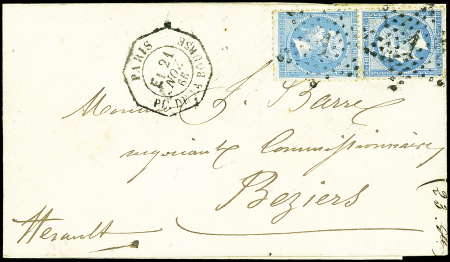 PARIS
PL. DE LA BOURSE
E1
21
NOV.
66
1
1
Monsieur J. Barre
negociant Commissionnaire
Beziers
Herault